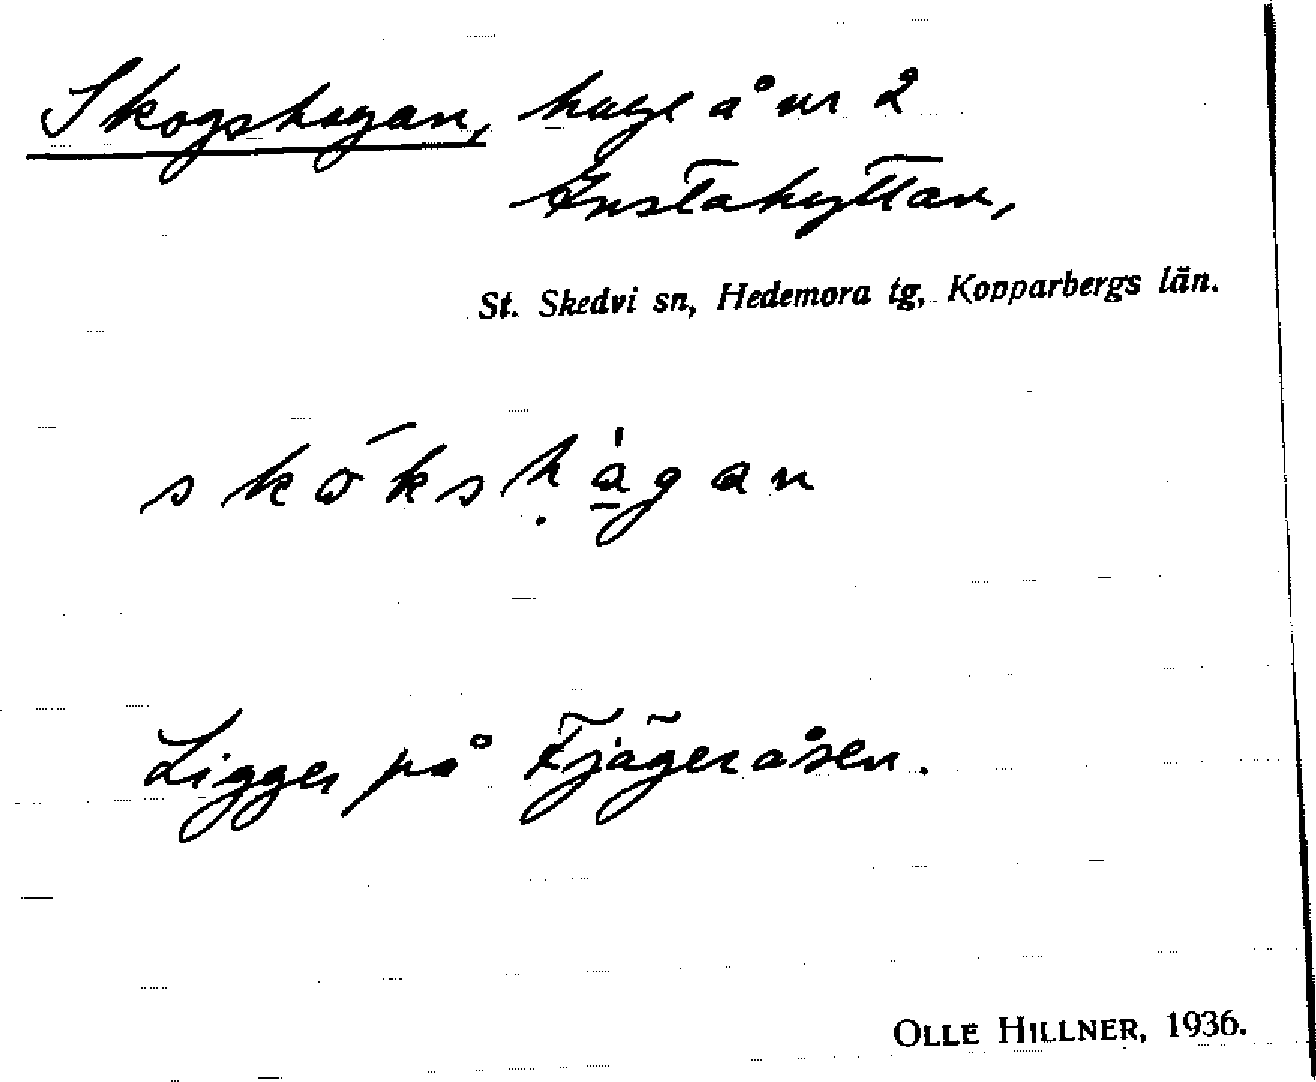 Skogshagan, hage å nr 2
Gustahyttan,
St. Skedvi sn, Hedemora tg, Kopparbergs län.
skókshágan
Ligger på Fjägeråsen.
OLLE HILLNER, 1936.